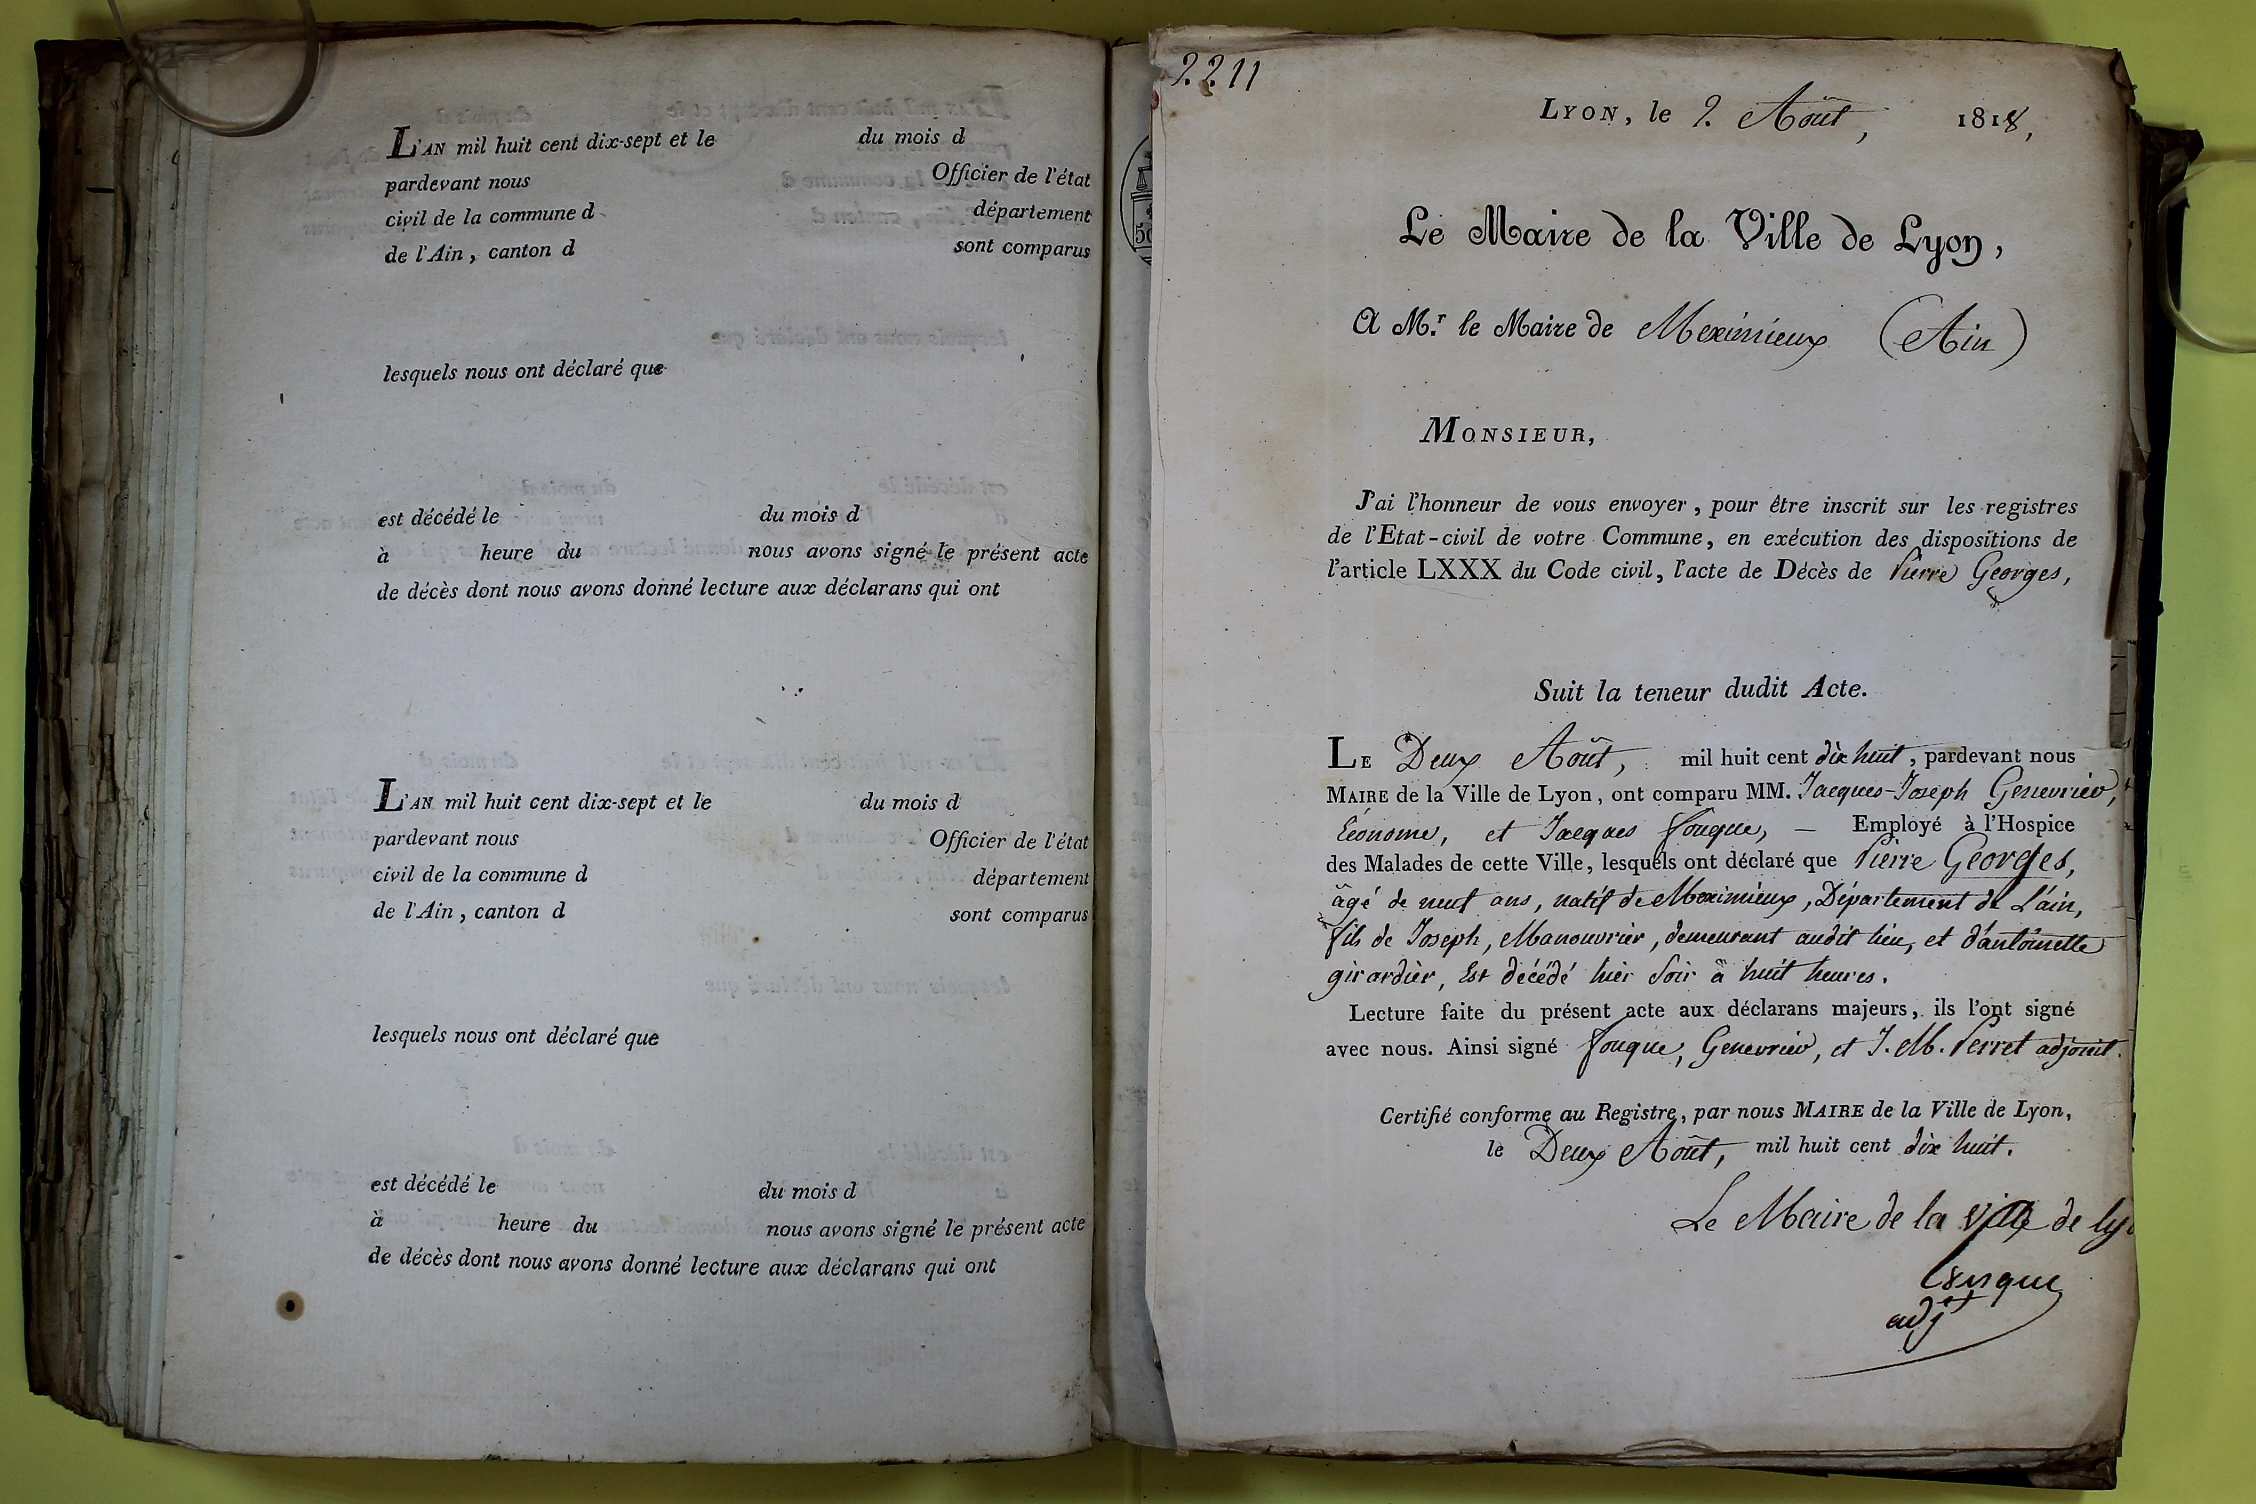 L'AN mil huit cent dix-sept et le du mois d
pardevant nous Officier de l'état
civil de la commune d département
de l'Ain, canton d sont comparus
lesquels nous ont déclaré que
est décédé le du mois d
à heure du nous avons signé le présent acte
de décès dont nous avons donné lecture aux déclarans qui ont
L'AN mil huit cent dix-sept et le du mois d
pardevant nous Officier de l'état
civil de la commune d département
de l'Ain, canton d sont comparus
lesquels nous ont déclaré que
est décédé le du mois d
à heure du nous avons signé le présent acte
de décès dont nous avons donné lecture aux déclarans qui ont
2211
LYON, le 2. Août, 1818,
Le Maire de la Ville de Lyon,
A M.r le Maire de Meximieux (Ain)
MONSIEUR,
J'ai l'honneur de vous envoyer, pour être inscrit sur les registres
de l'Etat-civil de votre Commune, en exécution des dispositions de
l'article LXXX du Code civil, l'acte de Décès de Pierre Georges,
Suit la teneur dudit Acte.
LE Deux Août, mil huit cent dix huit, pardevant nous
MAIRE de la Ville de Lyon, ont comparu MM. Jacques-Joseph Genevrier,
Économe, et Jacques fouque, — Employé à l'Hospice
des Malades de cette Ville, lesquels ont déclaré que Pierre Georges,
âgé de neuf ans, natif de Meximieux, Département de L'ain,
fils de Joseph, Manouvrier, demeurant audit lieu, et d'antoinette
girardier, Est décédé hier soir à huit heures.
Lecture faite du présent acte aux déclarans majeurs, ils l'ont signé
avec nous. Ainsi signé fouque, Genevrier, et J. M. Perret adjoint.
Certifié conforme au Registre, par nous MAIRE de la Ville de Lyon,
le Deux Août, mil huit cent dix huit.
Le Maire de la ville de ly
adjt